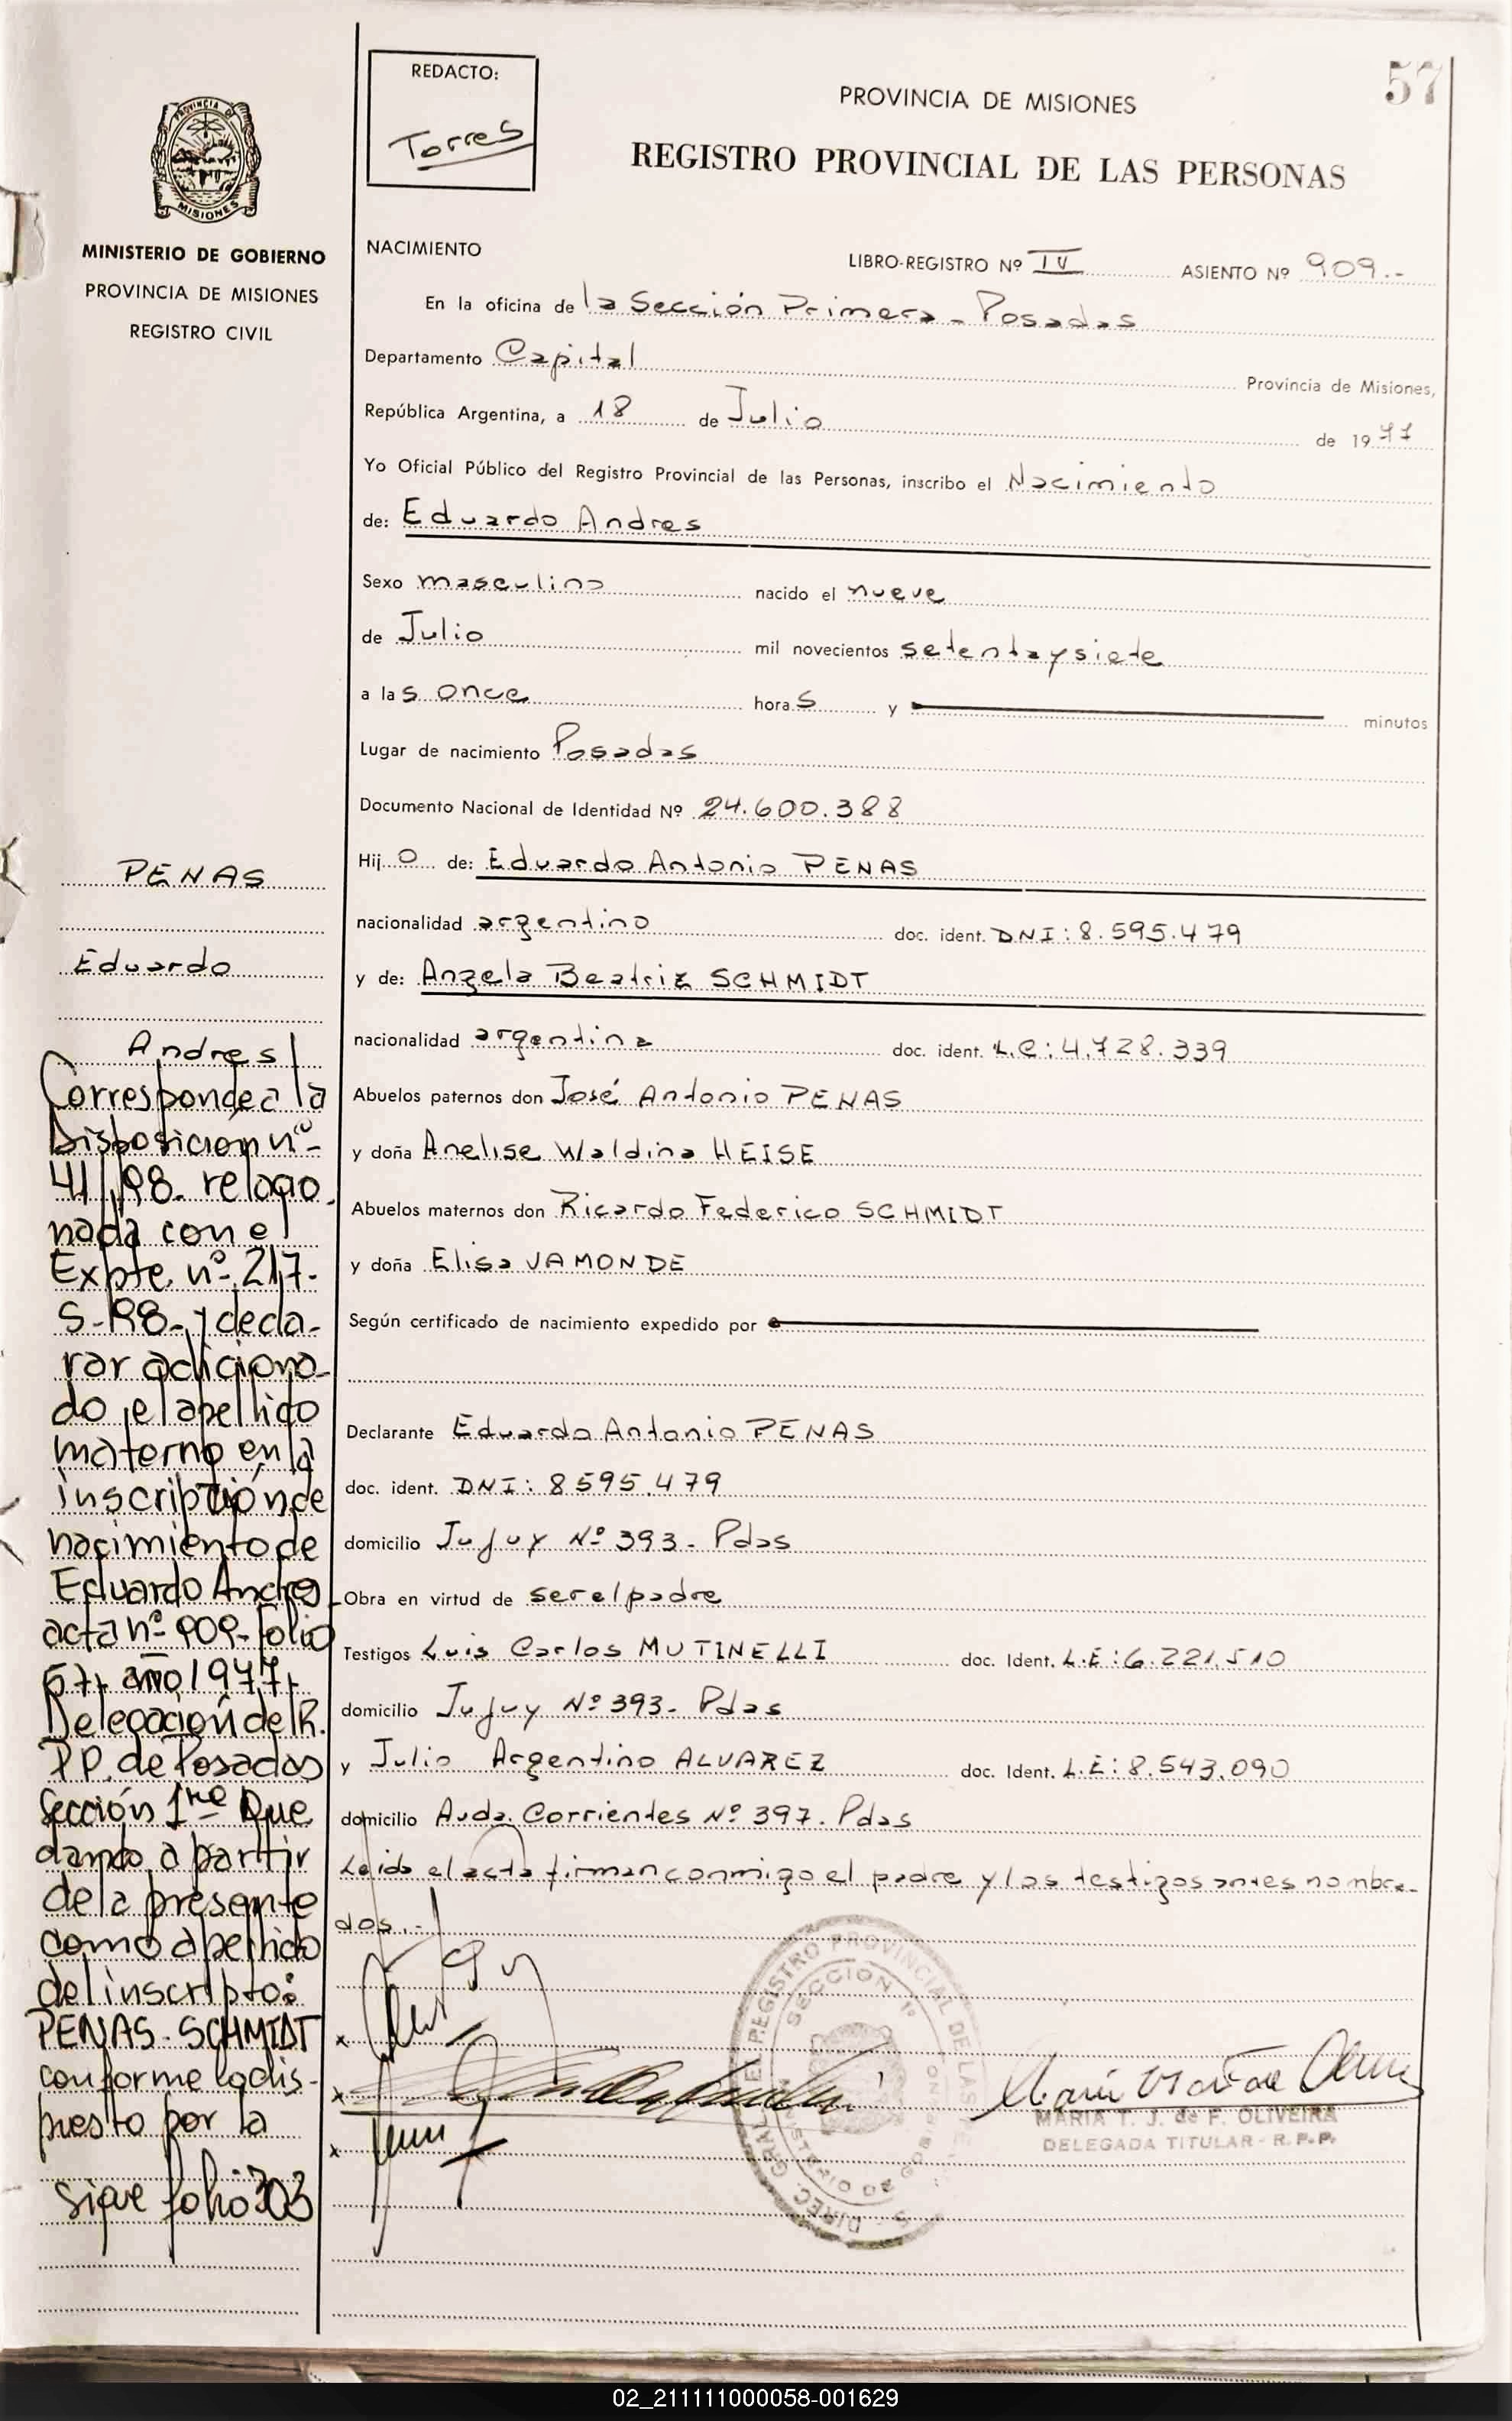 57
REDACTO:
Torres
PROVINCIA DE MISIONES
REGISTRO PROVINCIAL DE LAS PERSONAS
PROVINCIA D
MISIONES
MINISTERIO DE GOBIERNO
PROVINCIA DE MISIONES
REGISTRO CIVIL
NACIMIENTO
LIBRO-REGISTRO Nº IV ASIENTO Nº 909.-
En la oficina de la Sección Primera - Posadas
Departamento Capital Provincia de Misiones,
República Argentina, a 18 de Julio de 1977
Yo Oficial Público del Registro Provincial de las Personas, inscribo el Nacimiento
de: Eduardo Andres
Sexo masculino nacido el nueve
de Julio mil novecientos setentaysiete
a las once horas y minutos
Lugar de nacimiento Posadas
Documento Nacional de Identidad Nº 24.600.388
Hijo de: Eduardo Antonio PENAS
nacionalidad argentino doc. ident. DNI: 8.595.479
y de: Angela Beatriz SCHMIDT
nacionalidad argentina doc. ident. L.C: 4.728.339
Abuelos paternos don José Antonio PENAS
y doña Anelise Waldina HEISE
Abuelos maternos don Ricardo Federico SCHMIDT
y doña Elisa VAMONDE
Según certificado de nacimiento expedido por
Declarante Eduardo Antonio PENAS
doc. ident. DNI: 8595.479
domicilio Jujuy Nº 393 - Pdas
Obra en virtud de ser el padre
Testigos Luis Carlos MUTINELLI doc. Ident. L.E: 6.221.510
domicilio Jujuy Nº 393 - Pdas
y Julio Argentino ALVAREZ doc. Ident. L.E: 8.543.090
domicilio Avda. Corrientes Nº 397. Pdas
Leida el acta firman conmigo el padre y los testigos antes nombra-
dos.-
x
x
x
DIREC. GRAL. DEL REGISTRO PROVINCIAL DE LAS
SECCION 1º
MINISTERIO DE GOBIERNO
MARIA T. J. de F. OLIVEIRA
DELEGADA TITULAR - R.P.P.
PENAS
Eduardo
Andres
Corresponde a la
Disposición nº
41/98. relacio
nada con el
Expte. nº 217-
S-98- y decla-
rar adiciona-
do el apellido
materno en la
inscripción de
nacimiento de
Eduardo Andres
acta nº 909- folio
57- año 1977-
Delegación del R.
P.P. de Posadas
Sección 1ra Que
dando a partir
de la presente
como apellido
del inscripto:
PENAS-SCHMIDT
conforme lo dis-
puesto por la
sigue folio 303
02_211111000058-001629